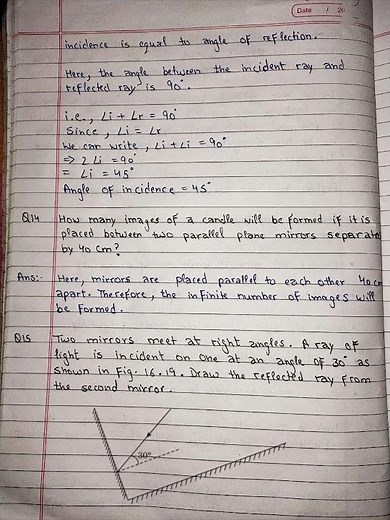 Date / 20
incidence is equal to angle of reflection.
Here, the angle between the incident ray and
reflected ray is 90°.
i.e., ∠i + ∠r = 90°
Since, ∠i = ∠r
We can write, ∠i + ∠i = 90°
⇒ 2∠i = 90°
= ∠i = 45°
Angle of incidence = 45°
Q14 How many images of a candle will be formed if it is
placed between two parallel plane mirrors separated
by 40 cm?
Ans:- Here, mirrors are placed parallel to each other 40 cm
apart. Therefore, the infinite number of images will
be formed.
Q15 Two mirrors meet at right angles. A ray of
light is incident on one at an angle of 30° as
shown in Fig. 16.19. Draw the reflected ray from
the second mirror.
30°